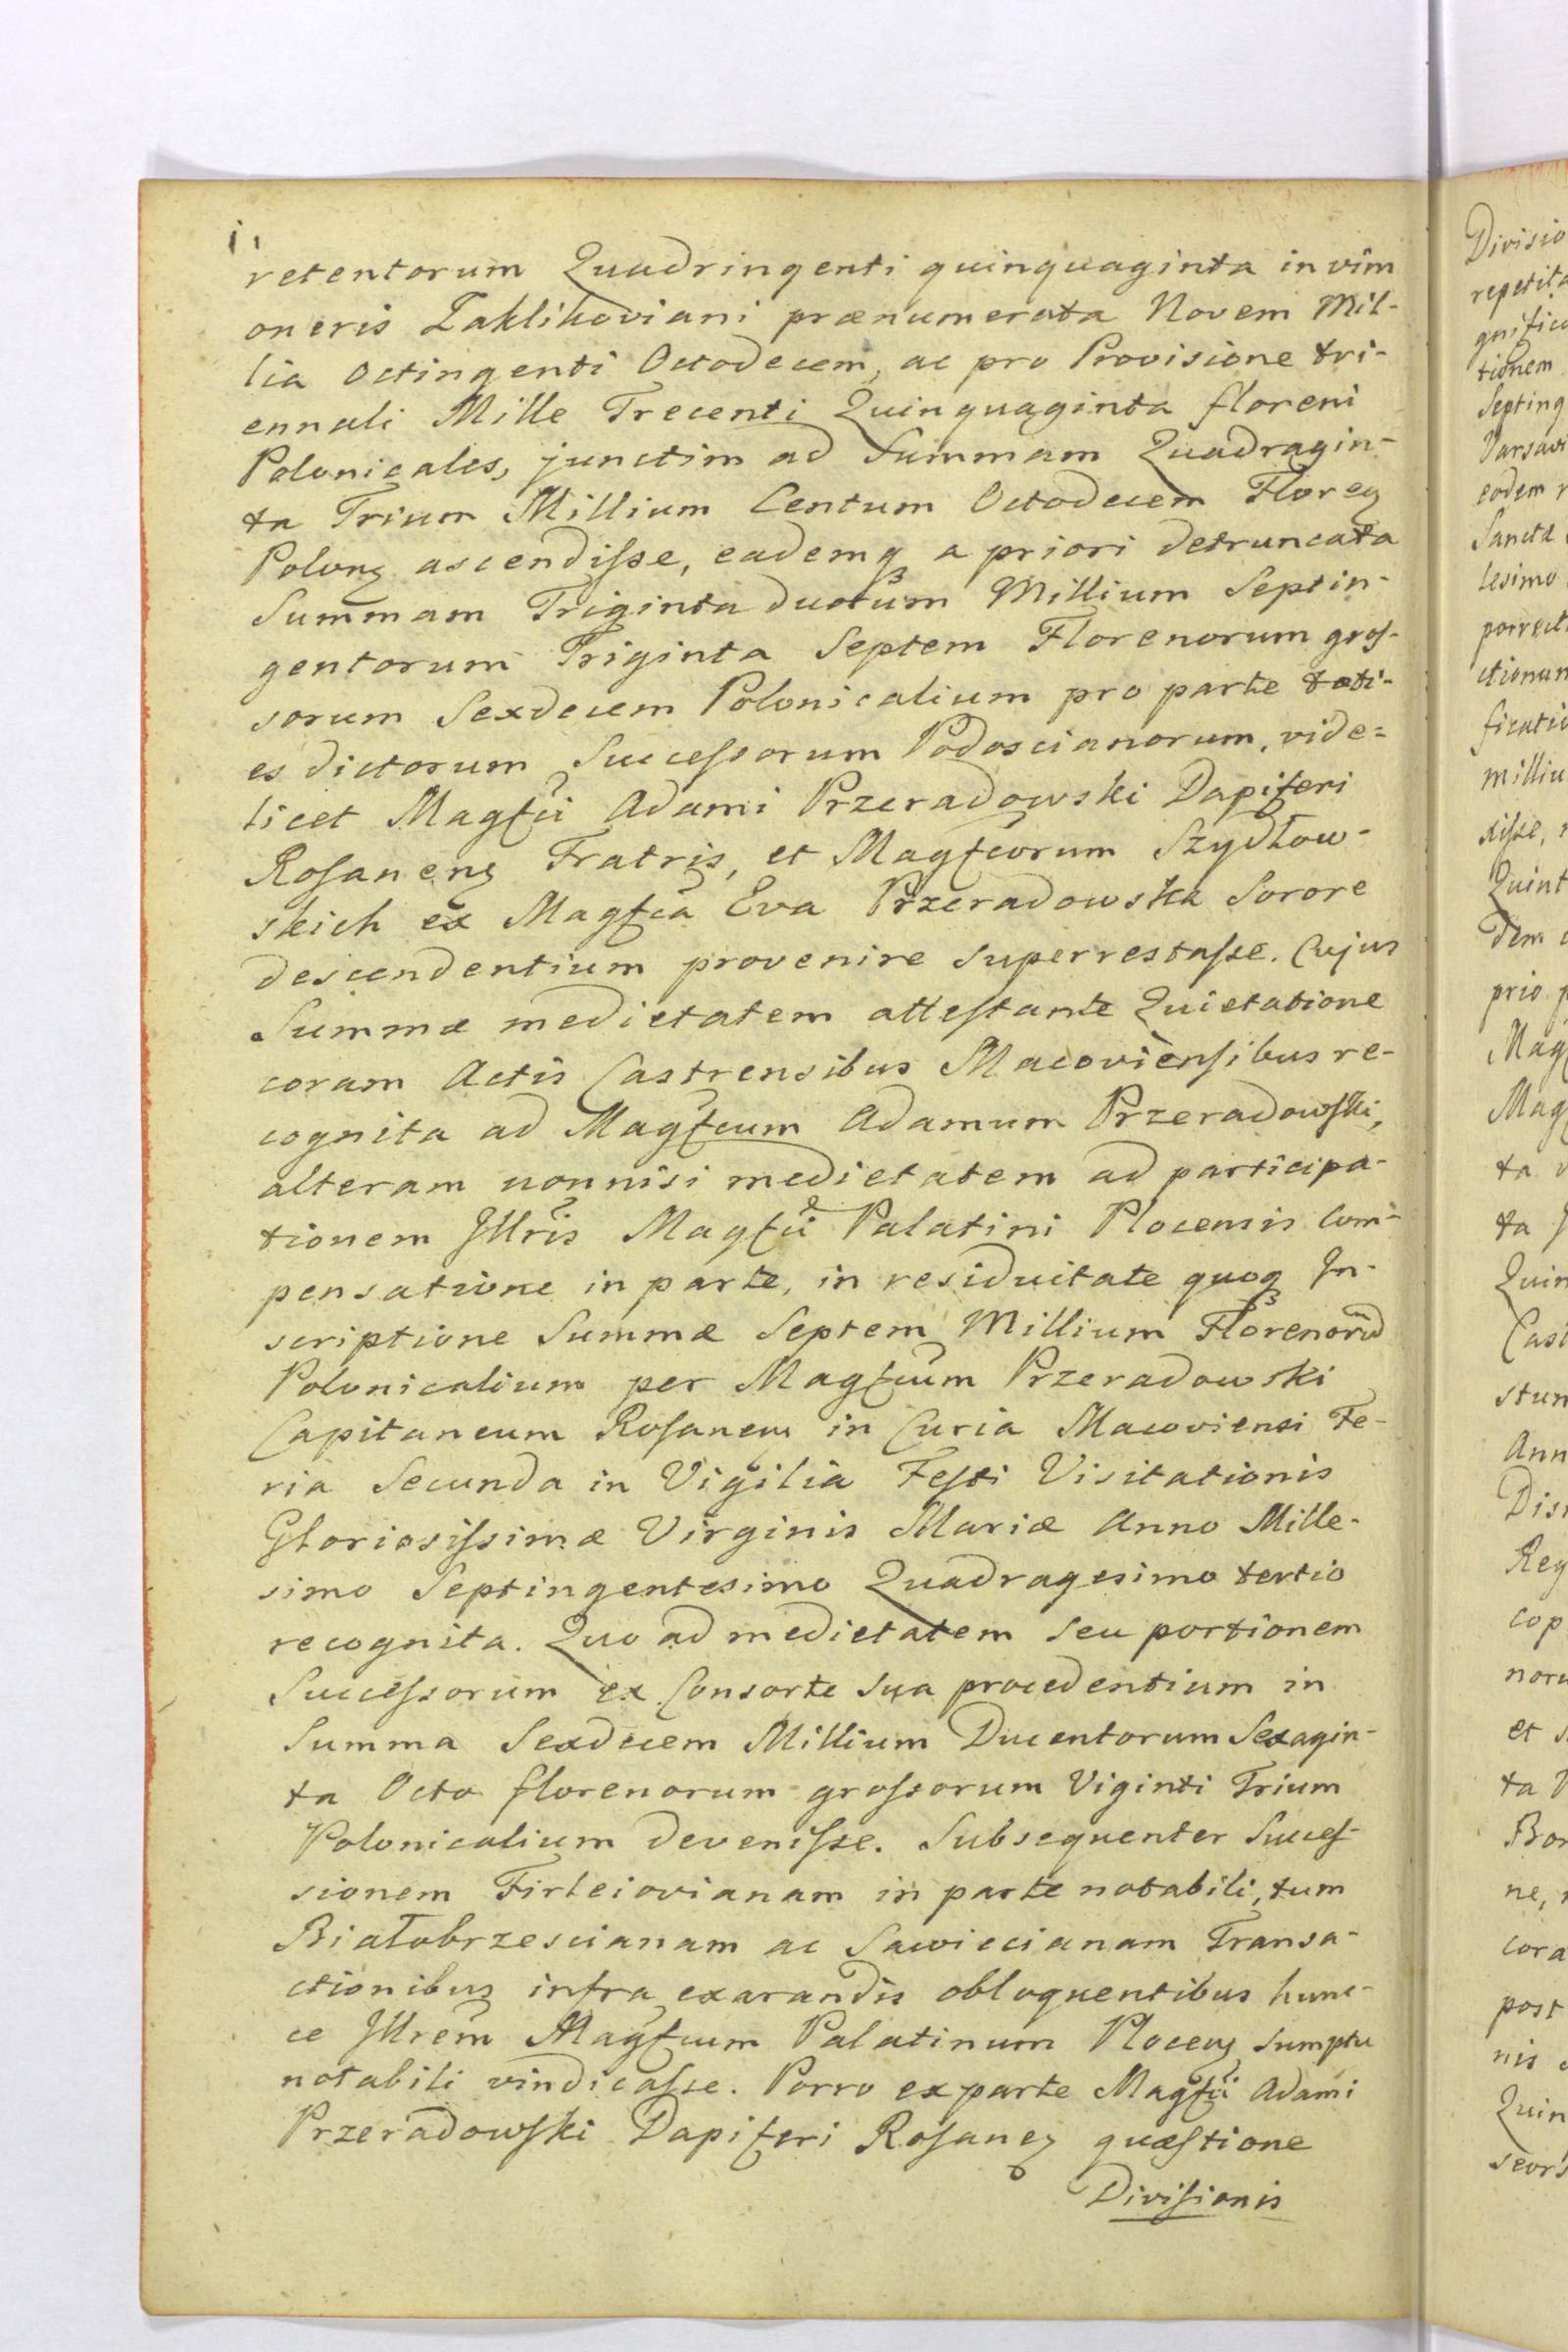 retentorum Quadringenti quinquaginta in vim
oneris Zaklikoviani prænumerata Novem Mil-
lia Octingenti Octodecem, ac pro Provisione tri-
ennali Mille Trecenti Quinquaginta floreni
Polonicales, junctim ad Summam Quadragin-
ta Trium Millium Centum Octodecem Floreꝝ
Polonꝝ ascendiſse, eademqꝫ a priori detruncata
Summam Triginta duorum Millium Septin-
gentorum Triginta Septem Florenorum groſ-
sorum Sexdecem Polonicalium pro parte toti-
es dictorum Succeſsorum Podoscianorum, vide=
licet Magfci Adami Przeradowski Dapiferi
Roſanenꝫ Fratris, et Magfcorum Szydłow-
skich ex Magfca Eva Przeradowska Sorore
descendentium provenire superrestaſse. Cujus
Summæ medietatem atteſtante Quietatione
coram Actis Castrensibus Macovienſibus re-
cognita ad Magfcum Adamum Przeradowſki,
alteram nonnisi medietatem ad participa-
tionem Jllris Magfci Palatini Plocensis Com-
pensatione in parte, in residuitate quoqꝫ Jn-
scriptione Summæ Septem Millium Florenorũ
Polonicalium per Magfcum Przeradowski
Capitaneum Roſanenꝫ in Curia Macoviensi Fe-
ria Secunda in Vigilia Feſti Visitationis
Gloriosiſsimæ Virginis Mariæ Anno Mille-
simo Septingentesimo Quadragesimo tertio
recognita. Quo ad medietatem seu portionem
Succeſsorum ex Consorte sua procedentium in
Summa Sexdecem Millium Ducentorum Sexagin-
ta Octo florenorum groſsorum Viginti Trium
Polonicalium deveniſse. Subsequenter Succeſ-
sionem Firleiovianam in parte notabili, tum
Białobrzescianam ac Sawiccianam Transa-
ctionibus infra exarandis obloquentibus hunc-
ce Jllrem Magfcum Palatinum Plocenꝫ sumptu
notabili vindicaſse. Porro ex parte Magfci Adami
Przeradowſki Dapiferi Roſanenꝫ quæſtione
Diviſionis
Divisio
repetita
tionem
Septing
Varsavi
eodem
Sanctæ
lesimo
milliu
Quint
dem
prio
Mag
Mag
ta
ta
Quin
Cast
stun
Ann
Reg
cop
noru
et
ta
ne,
cora
post
nis
Quin
seors